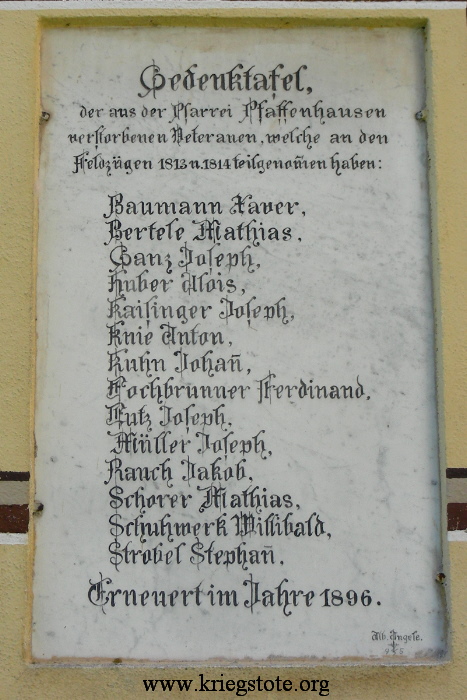 Gedenktafel,
der aus der Pfarrei Pfaffenhausen
verstorbenen Veteranen, welche an den
Feldzügen 1813 u. 1814 teilgenom̄en haben:
Baumann Xaver,
Bertele Mathias,
Ganz Joseph,
Huber Alois,
Kaisinger Joseph,
Knie Anton,
Kuhn Johan̄,
Lochbrunner Ferdinand,
Lutz Joseph,
Müller Joseph,
Rauch Jakob,
Schorer Mathias,
Schuhwerk Willibald,
Strobel Stephan̄,
Erneuert im Jahre 1896.
Alb. Angele.
www.kriegstote.org